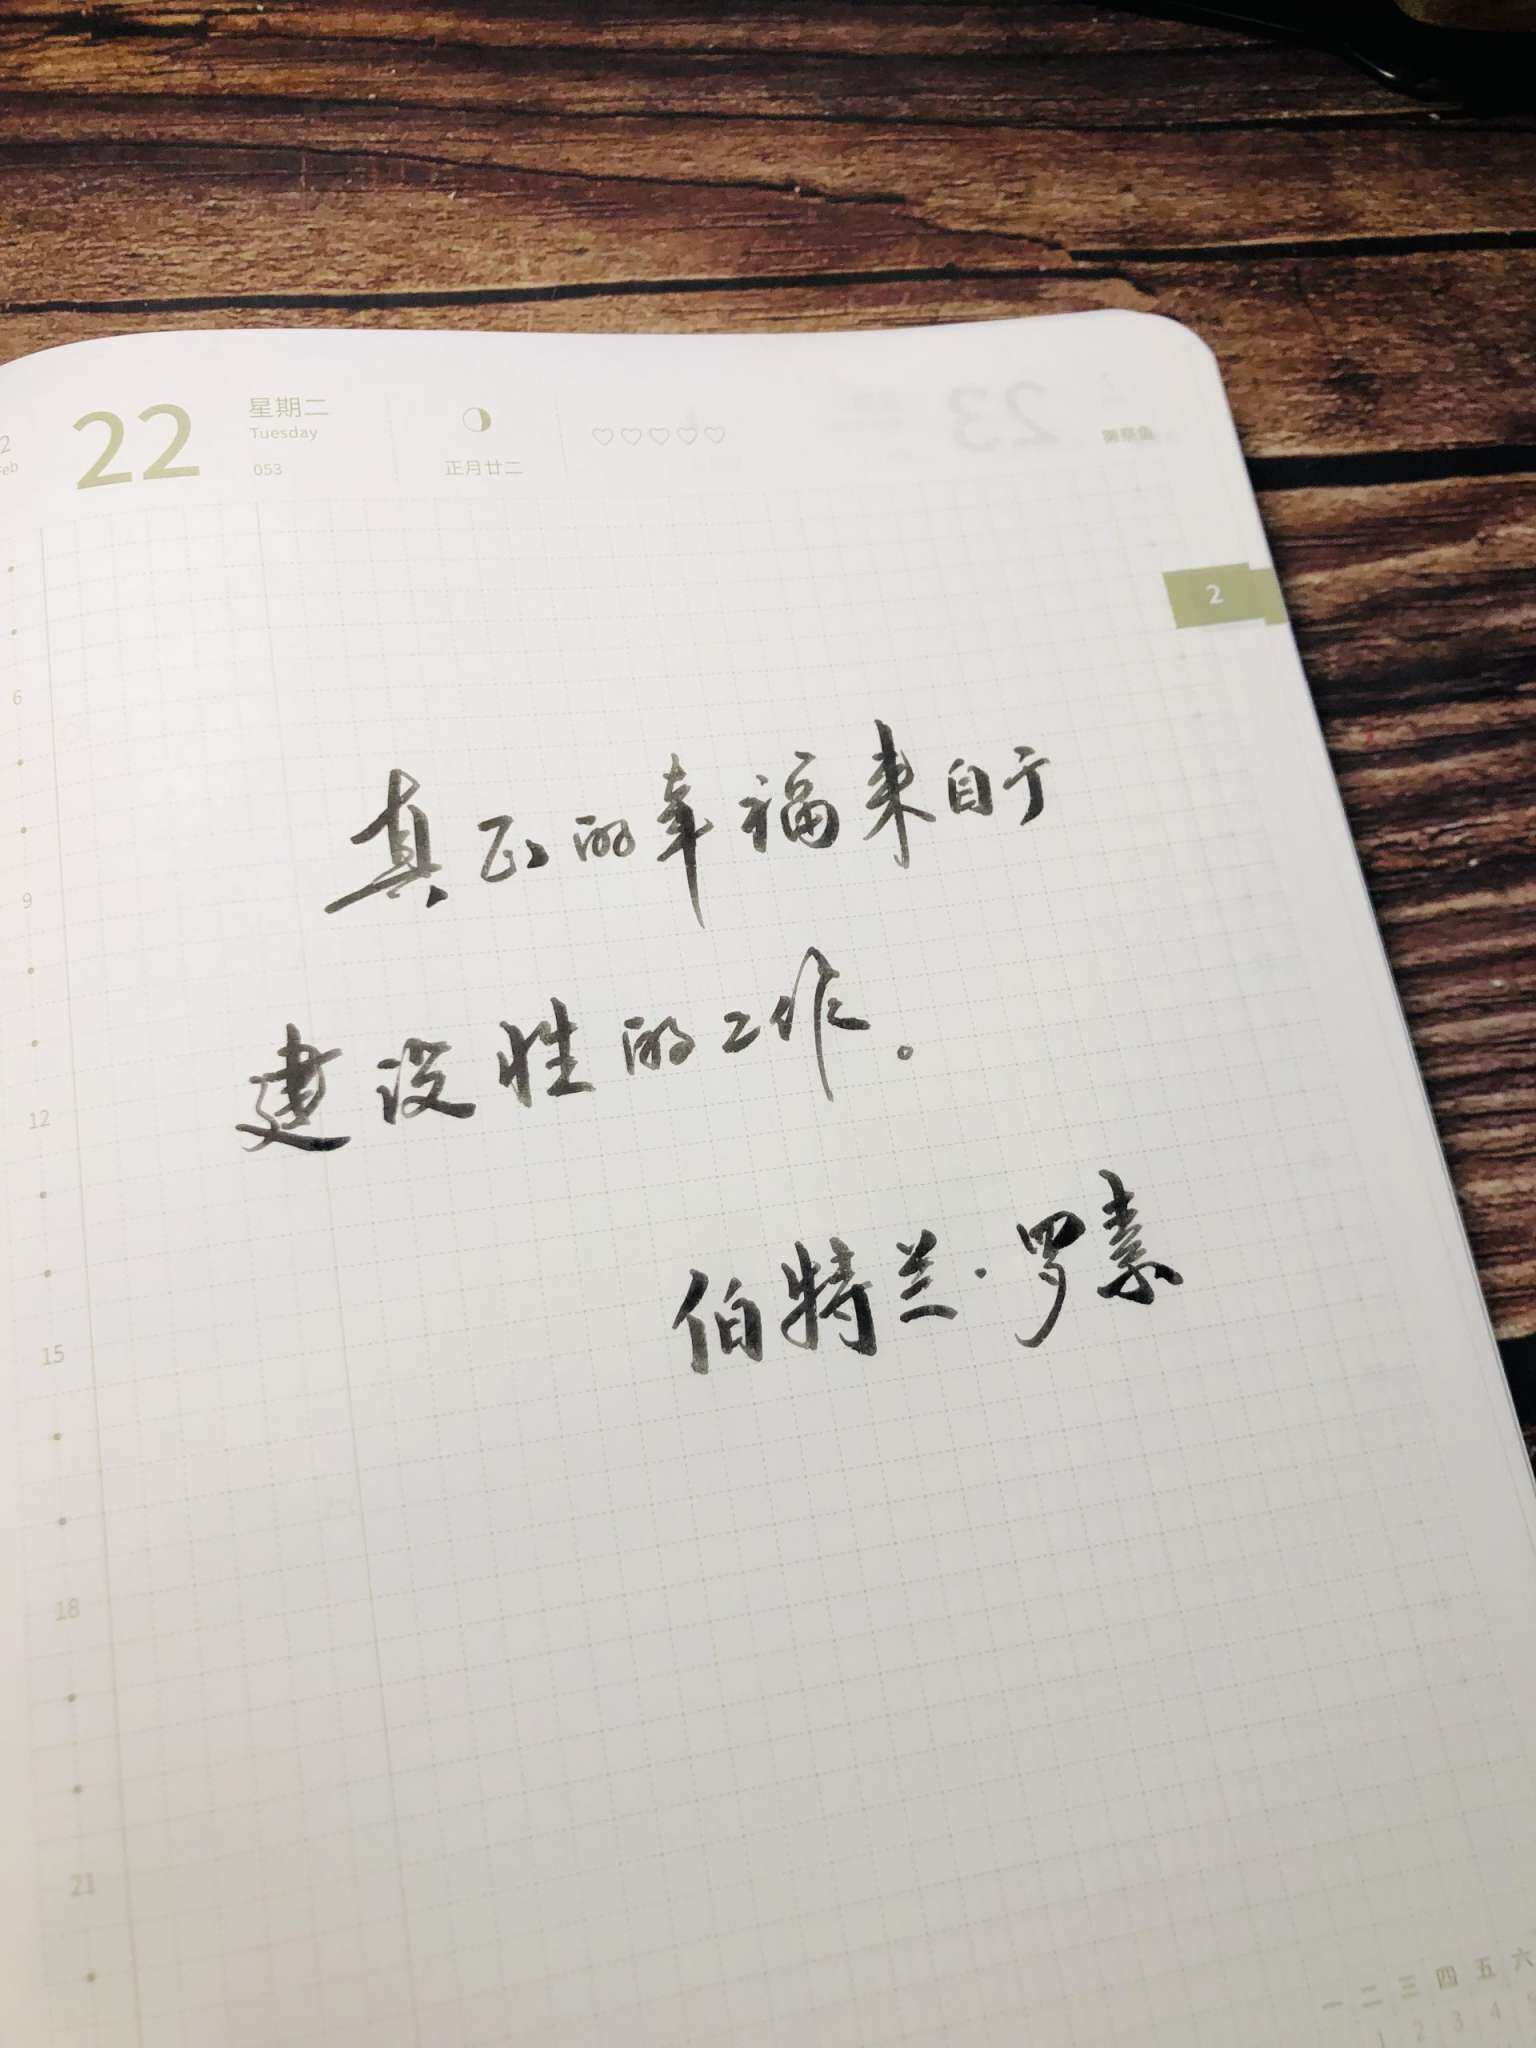 22
星期二
Tuesday
053
正月廿二
2
6
9
12
15
18
21
真正的幸福来自于
建设性的工作。
伯特兰·罗素
一 二 三 四 五 六
1 2 3 4